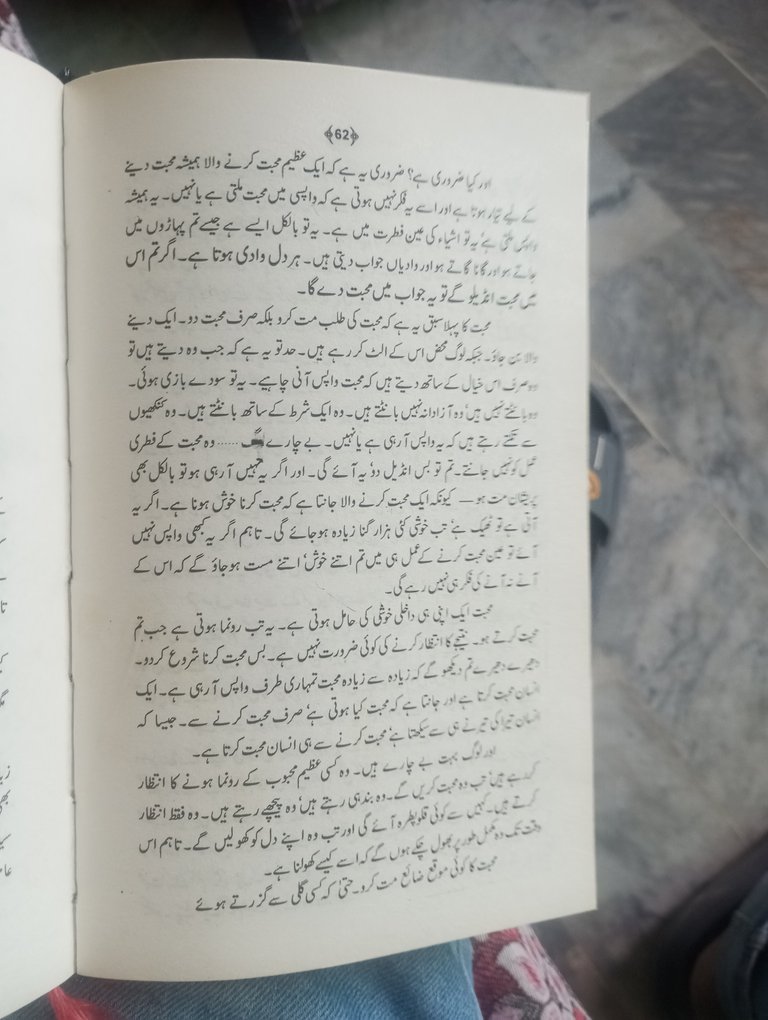 62
اور کیا ضروری ہے؟ ضروری یہ ہے کہ ایک عظیم محبت کرنے والا ہمیشہ محبت دینے
کے لیے تیار ہوتا ہے اور اسے یہ فکر نہیں ہوتی ہے کہ واپسی میں محبت ملتی ہے یا نہیں۔ یہ ہمیشہ
واپس ملتی ہے‘ یہ تو اشیاء کی عین فطرت میں ہے۔ یہ تو بالکل ایسے ہے جیسے تم پہاڑوں میں
جاتے ہو اور گانا گاتے ہو اور وادیاں جواب دیتی ہیں۔ ہر دل وادی ہوتا ہے۔ اگر تم اس
میں محبت انڈیلو گے تو یہ جواب میں محبت دے گا۔
محبت کا پہلا سبق یہ ہے کہ محبت کی طلب مت کرو بلکہ صرف محبت دو۔ ایک دینے
والا بن جاؤ۔ جبکہ لوگ محض اس کے الٹ کر رہے ہیں۔ حد تو یہ ہے کہ جب وہ دیتے ہیں تو
وہ صرف اس خیال کے ساتھ دیتے ہیں کہ محبت واپس آنی چاہیے۔ یہ تو سودے بازی ہوئی۔
وہ بانٹتے نہیں ہیں‘ وہ آزادانہ نہیں بانٹتے ہیں۔ وہ ایک شرط کے ساتھ بانٹتے ہیں۔ وہ کنکھیوں
سے تکتے رہتے ہیں کہ یہ واپس آ رہی ہے یا نہیں۔ بے چارے لوگ ...... وہ محبت کے فطری
عمل کو نہیں جانتے۔ تم تو بس انڈیل دو‘ یہ آئے گی۔ اور اگر یہ نہیں آ رہی ہو تو بالکل بھی
پریشان مت ہو — کیونکہ ایک محبت کرنے والا جانتا ہے کہ محبت کرنا خوش ہونا ہے۔ اگر یہ
آتی ہے تو ٹھیک ہے‘ تب خوشی کئی ہزار گنا زیادہ ہو جائے گی۔ تاہم اگر یہ کبھی واپس نہیں
آئے تو عین محبت کرنے کے عمل ہی میں تم اتنے خوش‘ اتنے مست ہو جاؤ گے کہ اس کے
آنے نہ آنے کی فکر ہی نہیں رہے گی۔
محبت ایک اپنی ہی داخلی خوشی کی حامل ہوتی ہے۔ یہ تب رونما ہوتی ہے جب تم
محبت کرتے ہو۔ نتیجے کا انتظار کرنے کی کوئی ضرورت نہیں ہے۔ بس محبت کرنا شروع کر دو۔
دھیرے دھیرے تم دیکھو گے کہ زیادہ سے زیادہ محبت تمہاری طرف واپس آ رہی ہے۔ ایک
انسان محبت کرتا ہے اور جانتا ہے کہ محبت کیا ہوتی ہے‘ صرف محبت کرنے سے۔ جیسا کہ
انسان تیراکی تیرنے ہی سے سیکھتا ہے‘ محبت کرنے سے ہی انسان محبت کرتا ہے۔
اور لوگ بہت بے چارے ہیں۔ وہ کسی عظیم محبوب کے رونما ہونے کا انتظار
کر رہے ہیں‘ تب وہ محبت کریں گے۔ وہ بند ہی رہتے ہیں‘ وہ پیچھے رہتے ہیں۔ وہ فقط انتظار
کرتے ہیں۔ کہیں سے کوئی قلوپطرہ آئے گی اور تب وہ اپنے دل کو کھولیں گے۔ تاہم اس
وقت تک وہ مکمل طور پر بھول چکے ہوں گے کہ اسے کیسے کھولنا ہے۔
محبت کا کوئی موقع ضائع مت کرو۔ حتیٰ کہ کسی گلی سے گزرتے ہوئے